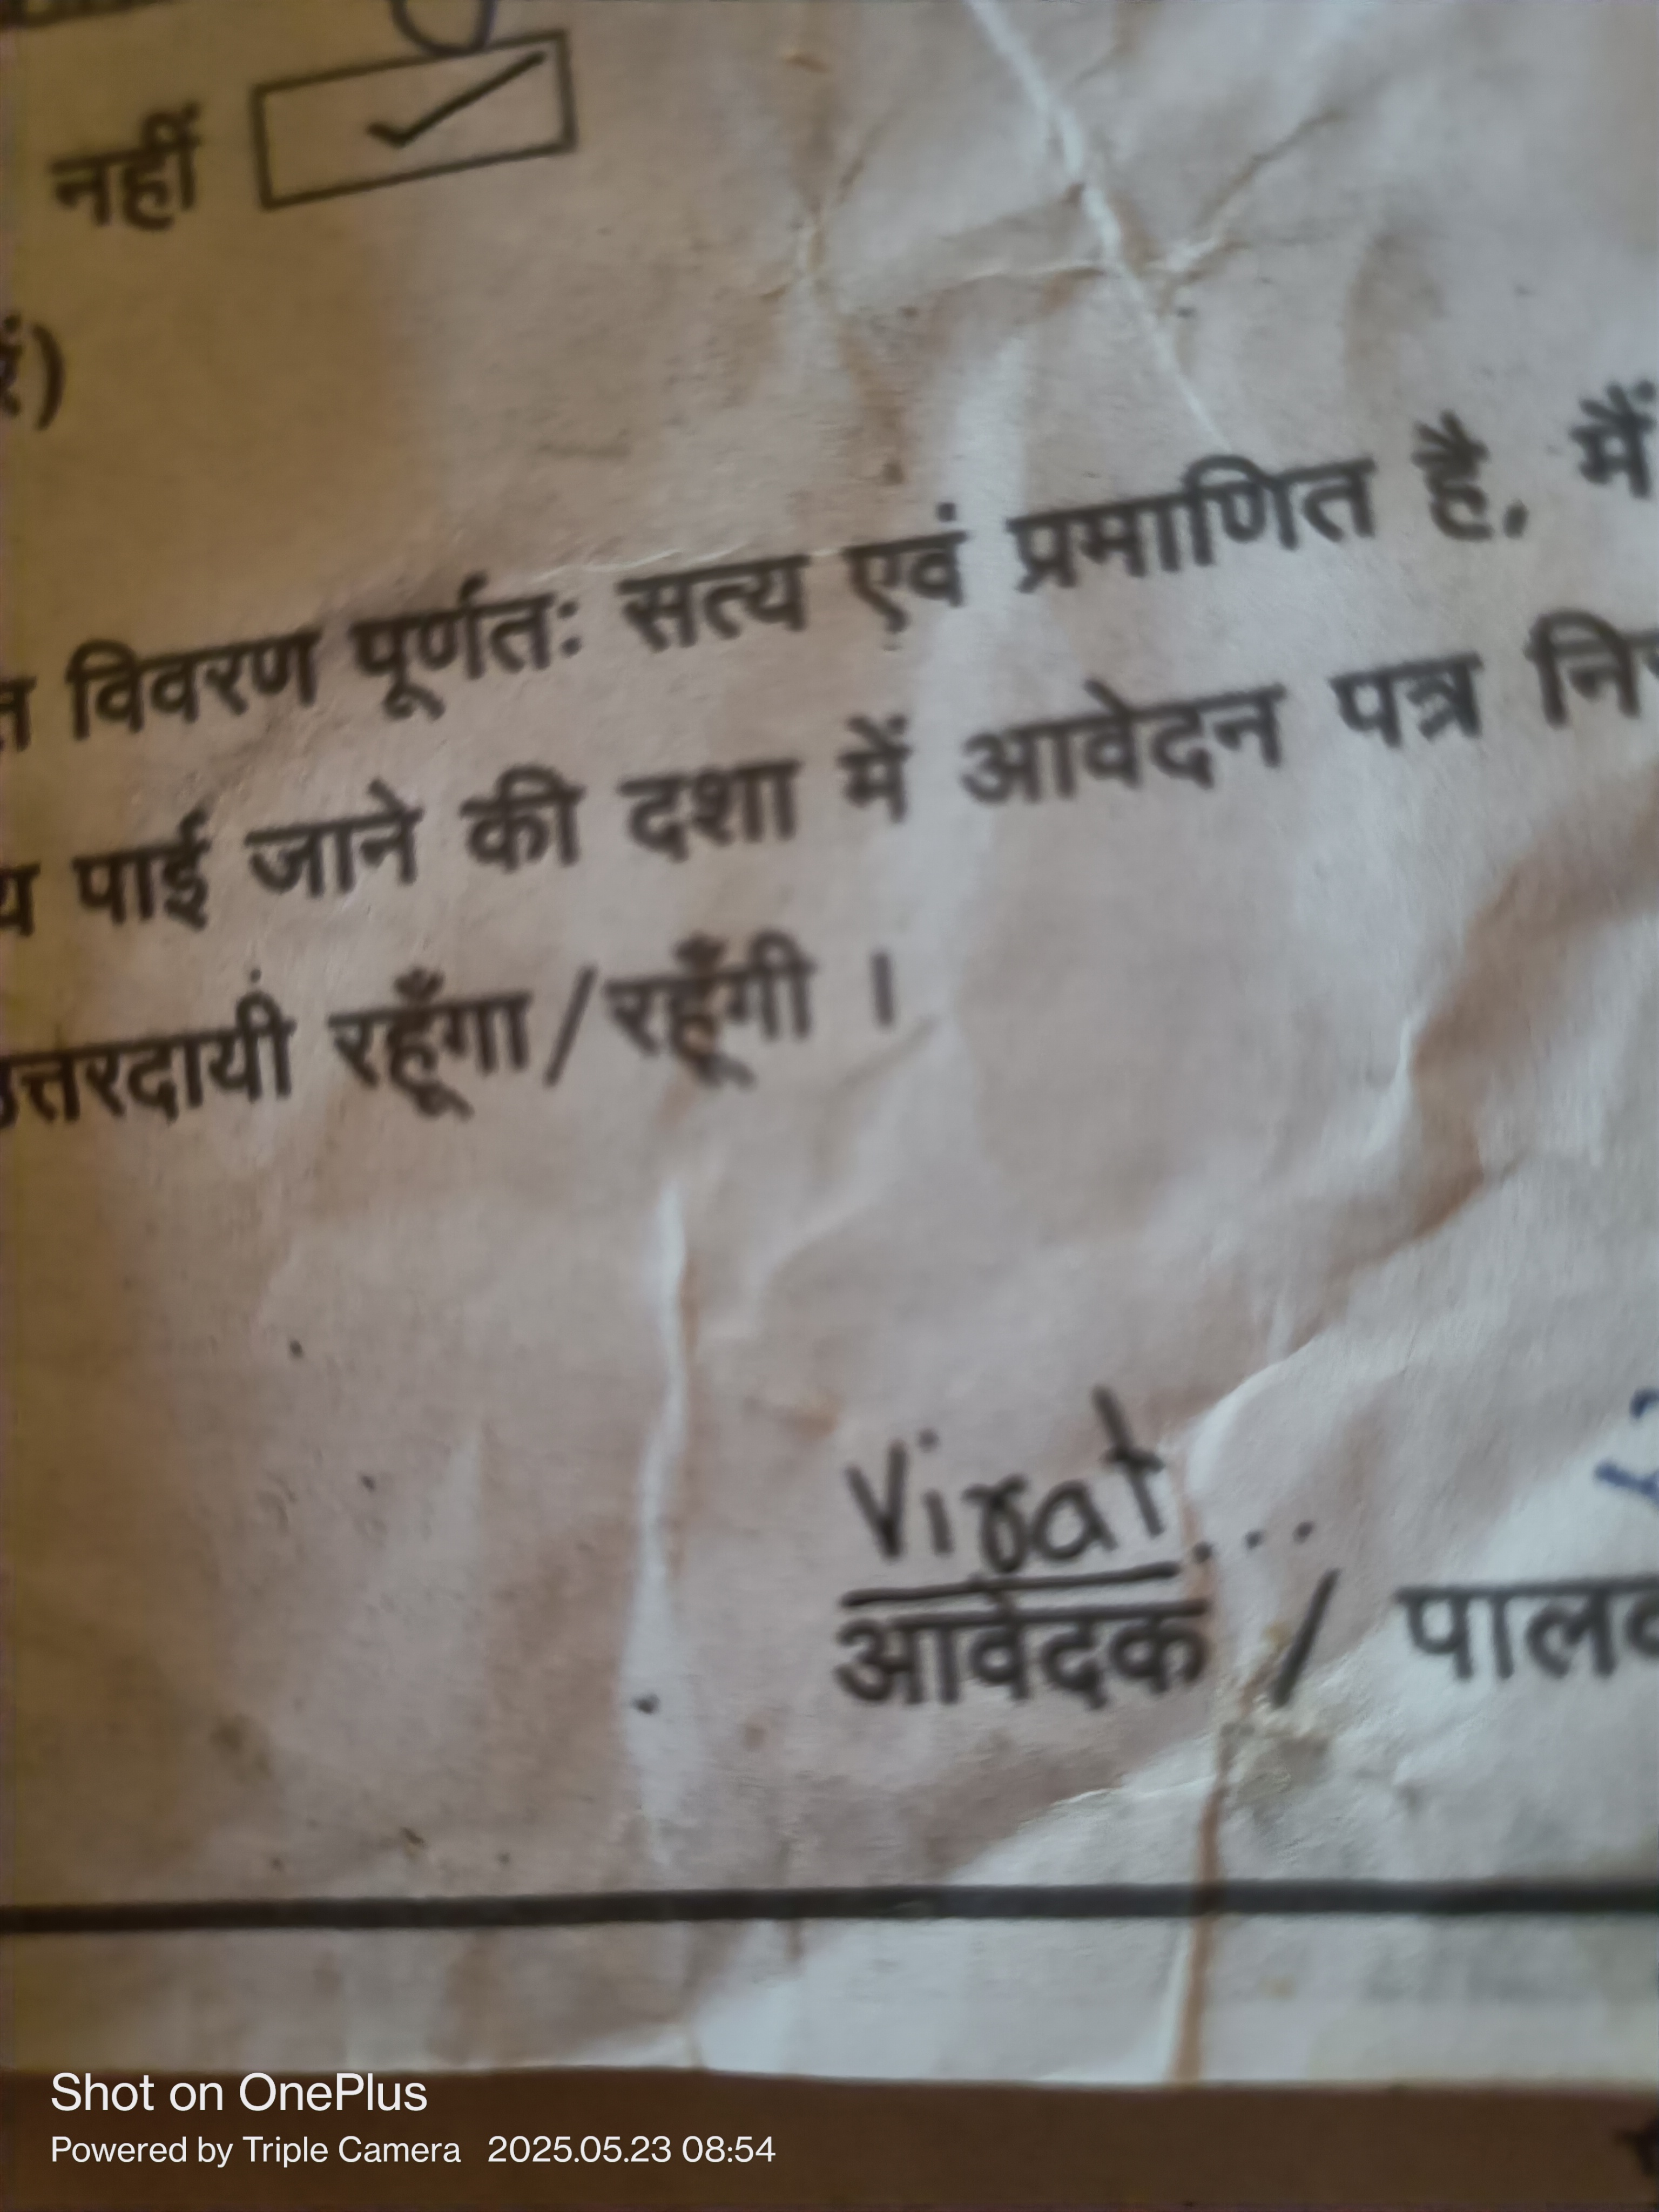 नहीं
विवरण पूर्णतः सत्य एवं प्रमाणित है, मैं
पाई जाने की दशा में आवेदन पत्र
उत्तरदायी रहूँगा/रहूँगी ।
Virat...
आवेदक /
Shot on OnePlus
Powered by Triple Camera 2025.05.23 08:54